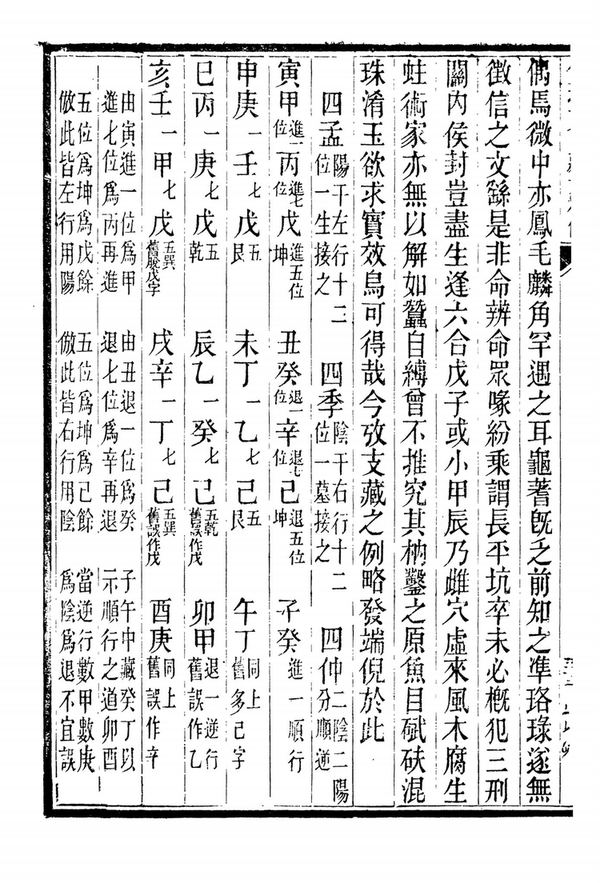 偶焉微中亦鳳毛麟角罕遇之耳龜蓍旣乏前知之凖珞琭遂無
徵信之文繇是非命辨命眾喙紛乘謂長平坑卒未必概犯三刑
關內侯封豈盡生逢六合戊子或小甲辰乃雌穴虛來風木腐生
蛀術家亦無以解如蠶自縛曾不推究其枘鑿之原魚目碔砆混
珠淆玉欲求實效烏可得哉今攷支藏之例略發端倪於此
四孟陽干左行十二位一生接之 四季陰干右行十二位一墓接之 四仲二陰二陽分順逆
寅甲進一位丙進七位戊進五位坤 丑癸退一位辛退七位己退五位坤 子癸進一順行
申庚一壬七戊五艮 未丁一乙七己五艮 午丁同上舊多己字
巳丙一庚七戊五乾 辰乙一癸七己五乾舊誤作戊 卯甲退一逆行舊誤作乙
亥壬一甲七戊五巽舊脫戊字 戌辛一丁七己五巽舊誤作戊 酉庚同上舊誤作辛
由寅進一位爲甲 由丑退一位爲癸 子午中藏癸丁以
進七位爲丙再進 退七位爲辛再退 示順行之道卯酉
五位爲坤爲戊餘 五位爲坤爲己餘 當逆行數甲數庚
倣此皆左行用陽 倣此皆右行用陰 爲陰爲退不宜誤